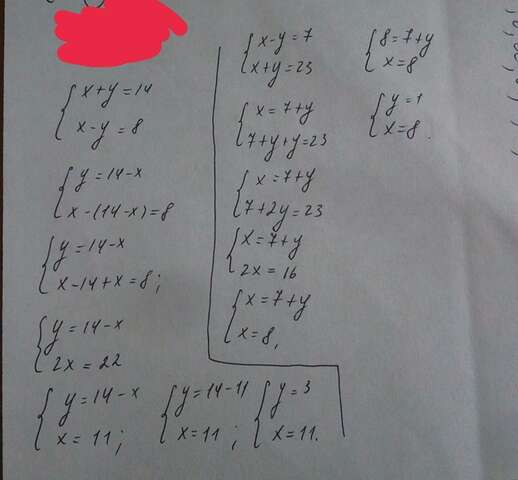 x+y=14
x-y=8
y=14-x
x-(14-x)=8
y=14-x
x-14+x=8;
y=14-x
2x=22
y=14-x
x=11;
y=14-11
x=11;
y=3
x=11.
x-y=7
x+y=23
x=7+y
7+y+y=23
x=7+y
7+2y=23
x=7+y
2x=16
x=7+y
x=8,
8=7+y
x=8
y=1
x=8.